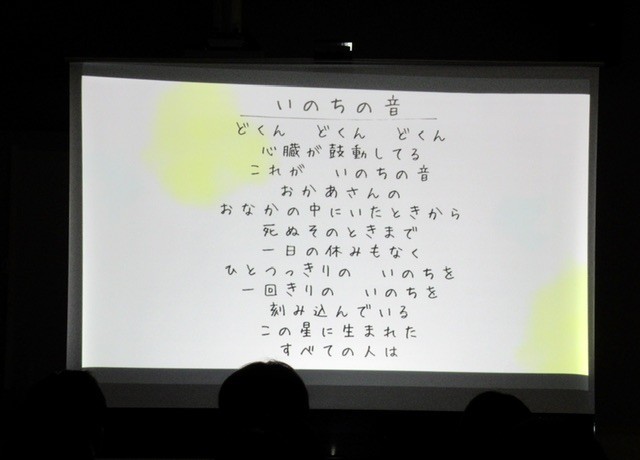 いのちの音
どくん　どくん　どくん
心臓が鼓動してる
これが　いのちの音
おかあさんの
おなかの中にいたときから
死ぬそのときまで
一日の休みもなく
ひとつっきりの　いのちを
一回きりの　いのちを
刻み込んでいる
この星に生まれた
すべての人は